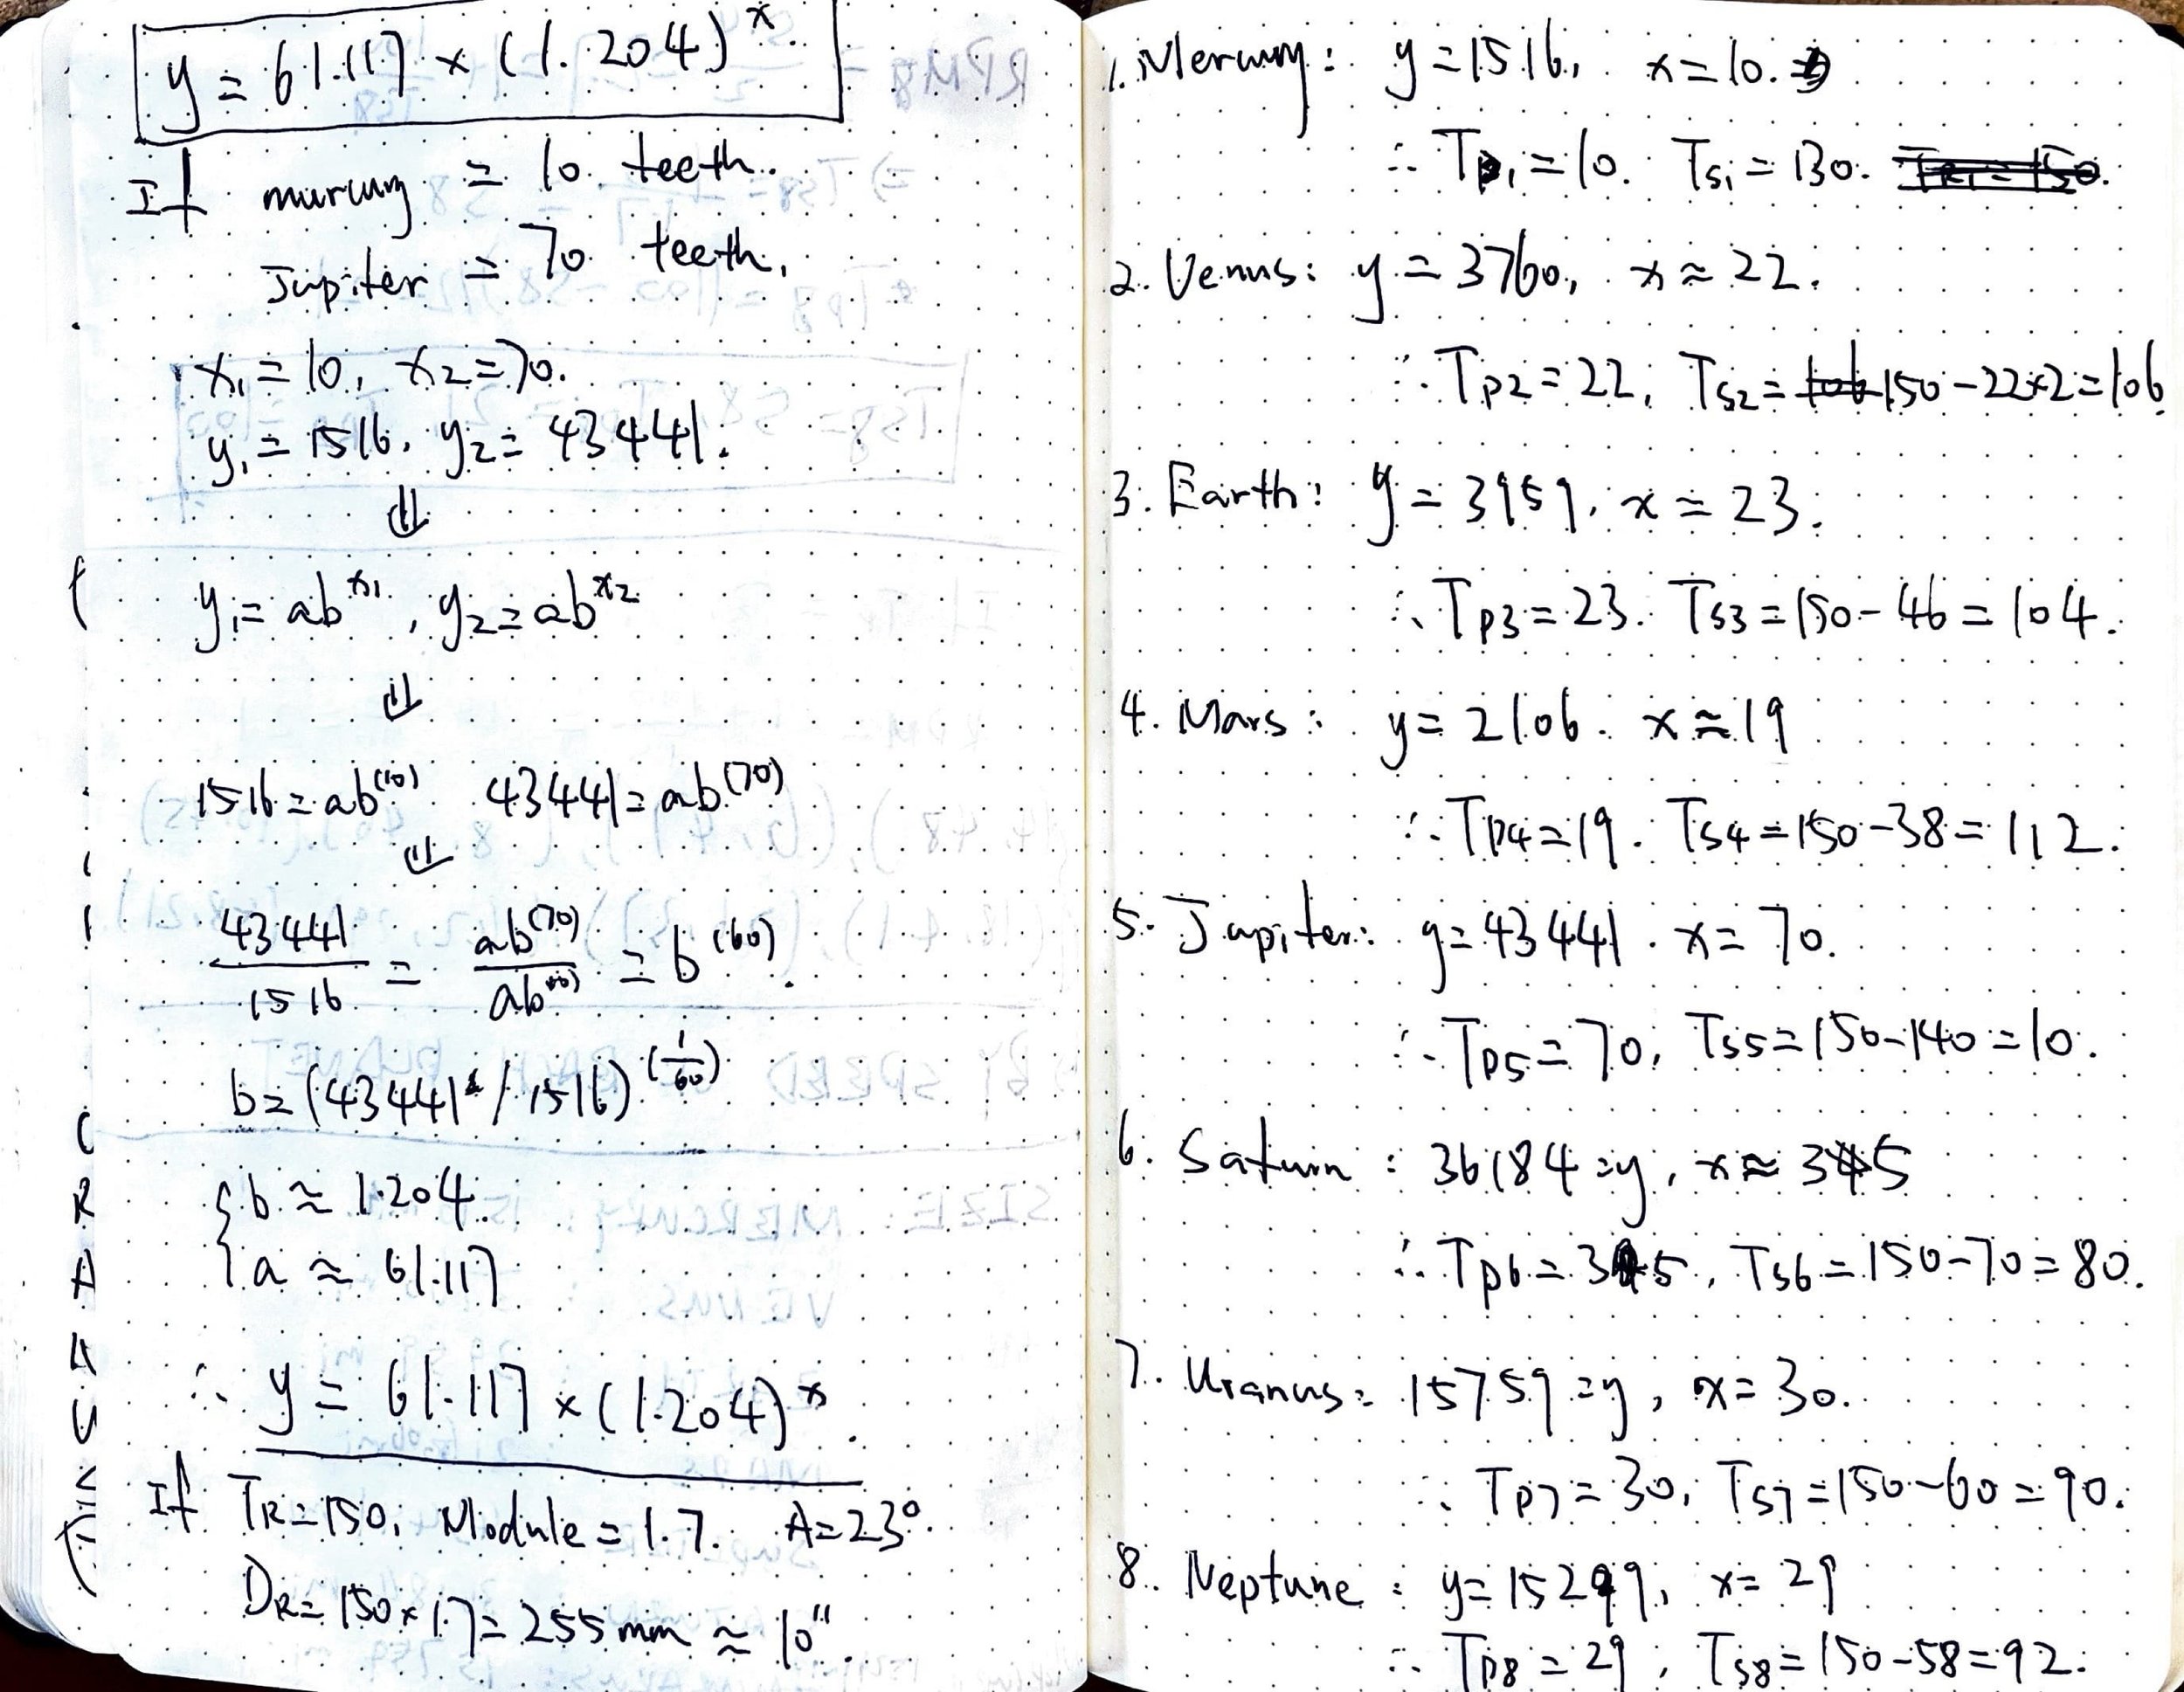 y = 61.117 × (1.204)^x.
If murcury = 10 teeth.
Jupiter = 70 teeth.
x₁ = 10, x₂ = 70.
y₁ = 1516, y₂ = 43441.
⇓
y₁ = ab^x₁, y₂ = ab^x₂
⇓
1516 = ab^(10) 43441 = ab^(70)
⇓
43441/1516 = ab^(70)/ab^(10) = b^(60).
b = (43441/1516)^(1/60)
{ b ≈ 1.204
a ≈ 61.117
∴ y = 61.117 × (1.204)^x.
If TR = 150, Module = 1.7. A = 23°.
DR = 150 × 1.7 = 255 mm ≈ 10".
1. Mercury: y = 1516, x = 10.
∴ Tp1 = 10. Ts1 = 130.
2. Venus: y = 3760, x ≈ 22.
∴ Tp2 = 22, Ts2 = 150 - 22×2 = 106
3. Earth: y = 3959, x = 23.
∴ Tp3 = 23. Ts3 = 150 - 46 = 104.
4. Mars: y = 2106. x ≈ 19
∴ Tp4 = 19. Ts4 = 150 - 38 = 112.
5. Jupiter: y = 43441. x = 70.
∴ Tp5 = 70, Ts5 = 150 - 140 = 10.
6. Saturn: 36184 = y, x ≈ 35
∴ Tp6 = 35, Ts6 = 150 - 70 = 80.
7. Uranus: 15759 = y, x = 30.
∴ Tp7 = 30, Ts7 = 150 - 60 = 90.
8. Neptune: y = 15299, x = 29
∴ Tp8 = 29, Ts8 = 150 - 58 = 92.